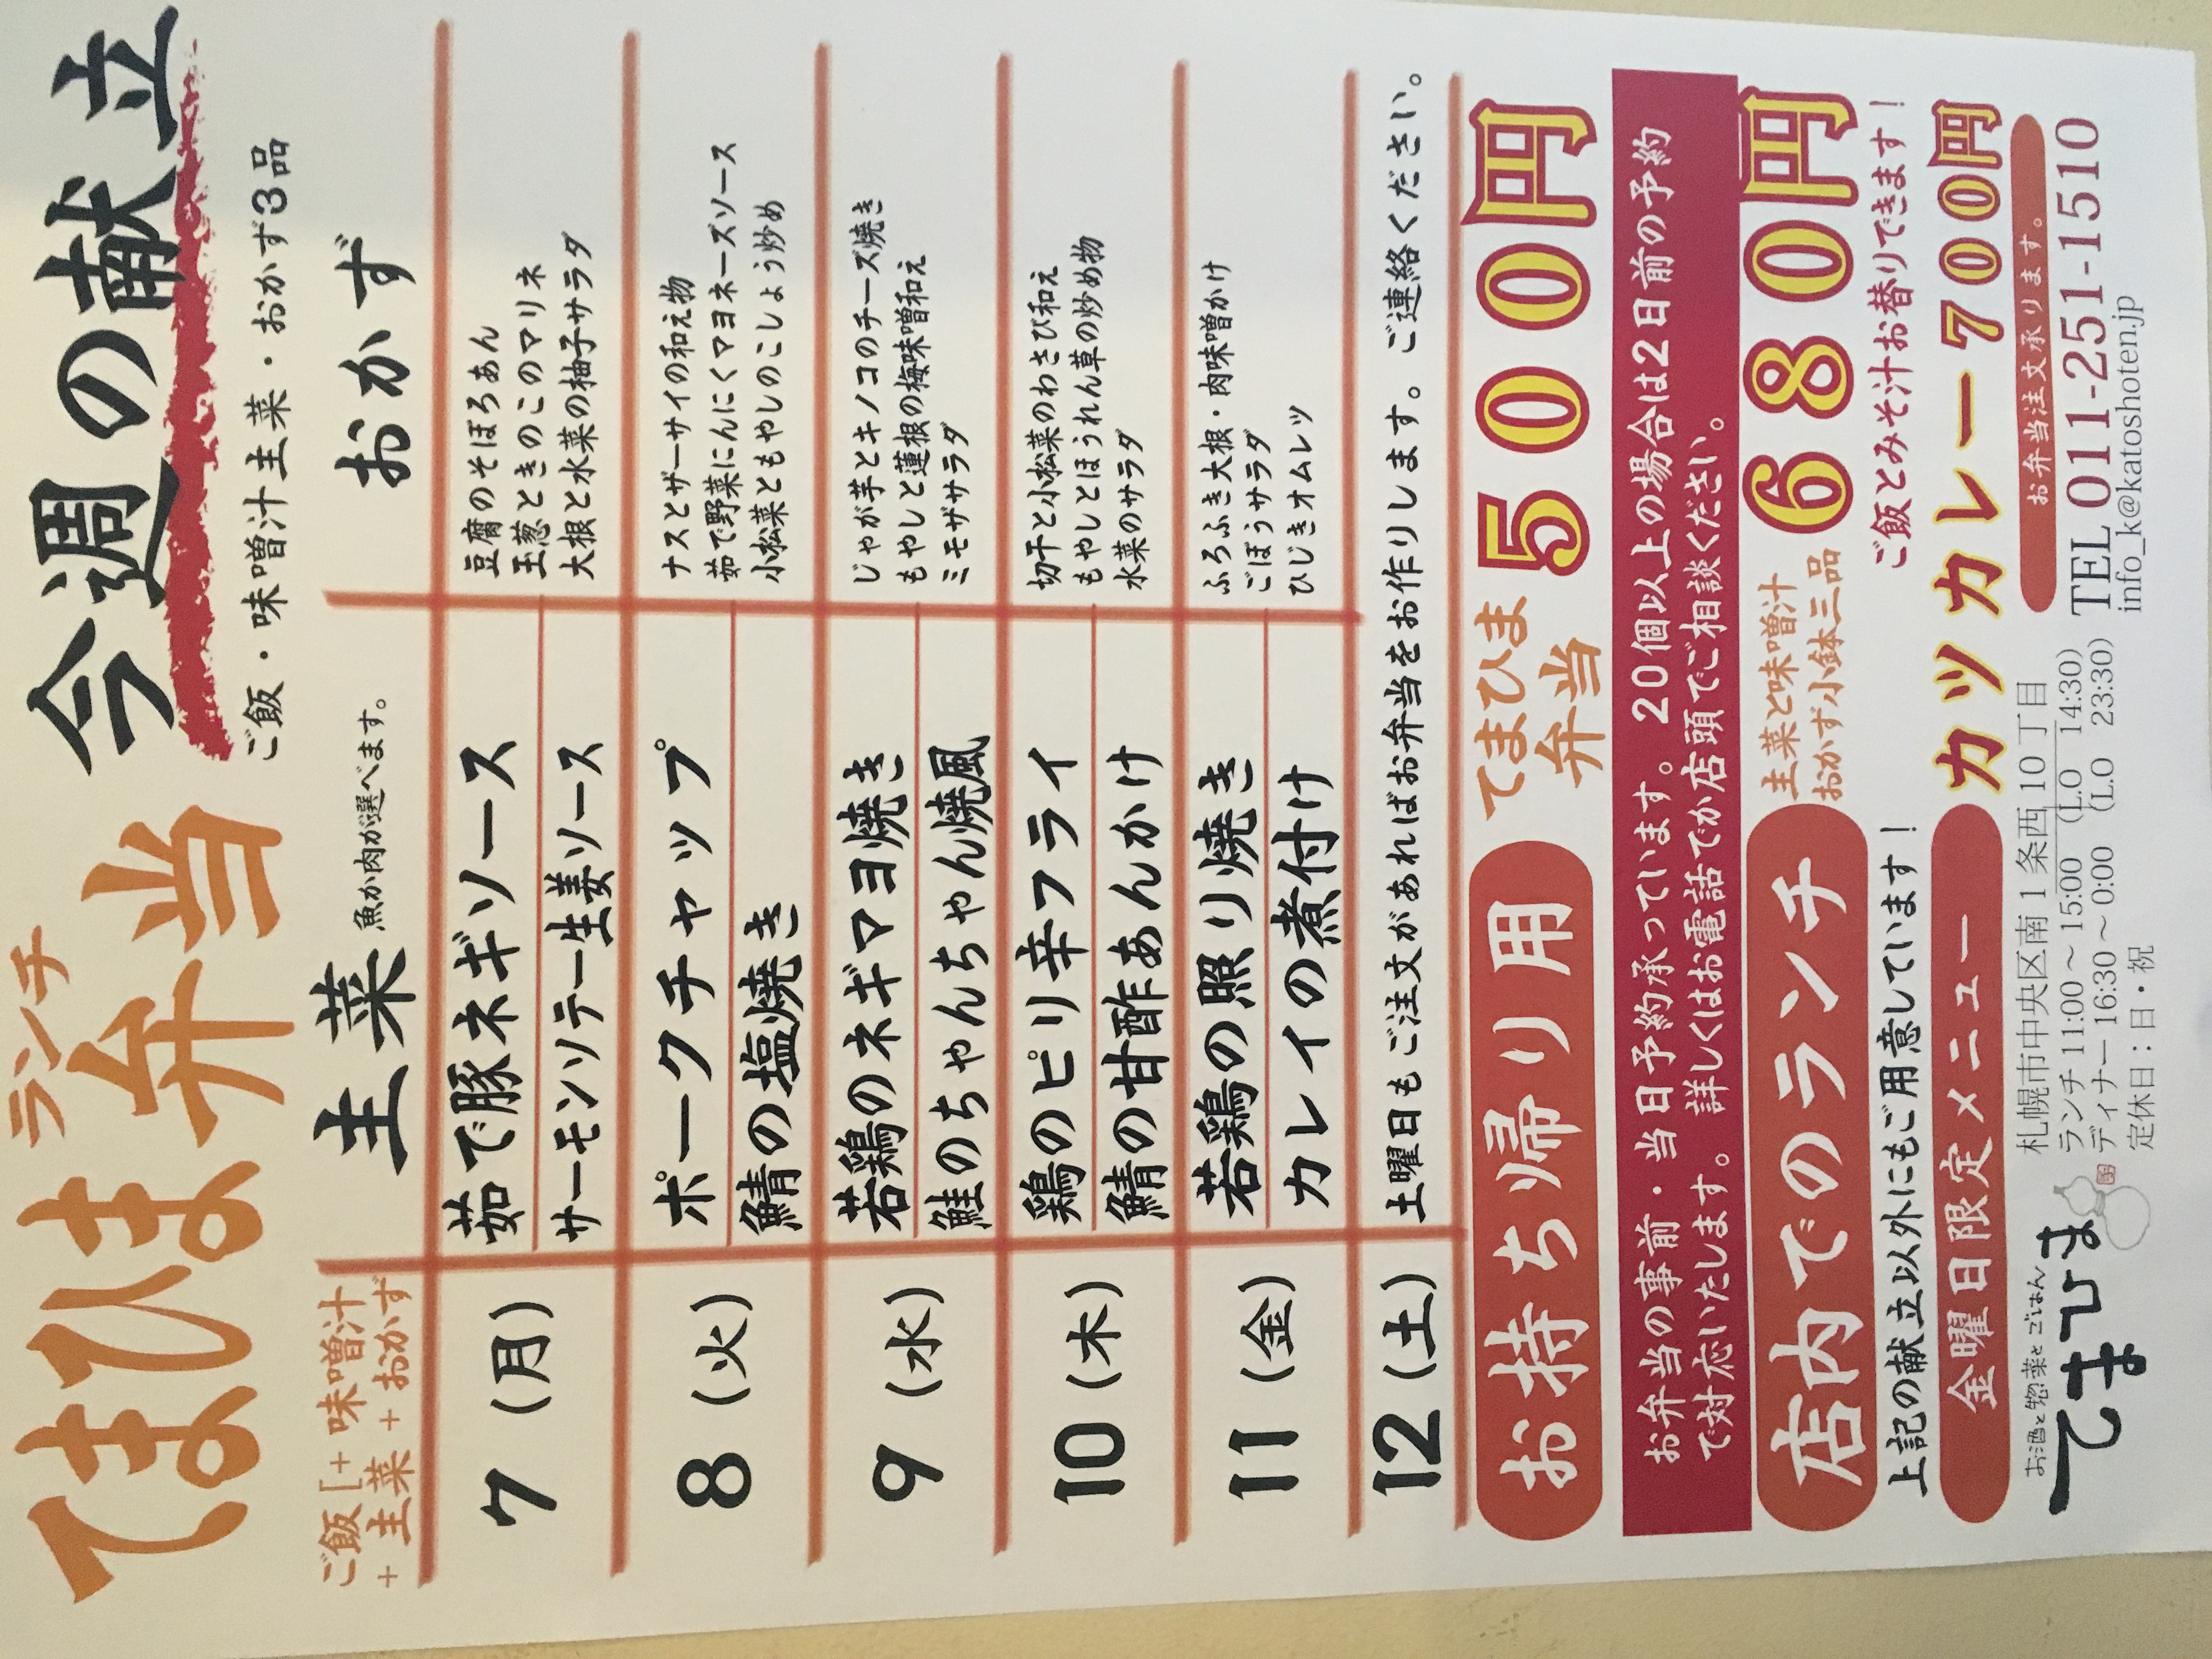 ランチ
てまひま弁当 今週の献立
ご飯・味噌汁主菜・おかず3品
ご飯[+味噌汁
+主菜+おかず
主菜 魚か肉が選べます。
おかず
7(月)
茹で豚ネギソース
サーモンソテー生姜ソース
豆腐のそぼろあん
玉葱ときのこのマリネ
大根と水菜の柚子サラダ
8(火)
ポークチャップ
鯖の塩焼き
ナスとザーサイの和え物
茹で野菜にんにくマヨネーズソース
小松菜ともやしのこしょう炒め
9(水)
若鶏のネギマヨ焼き
鮭のちゃんちゃん焼風
じゃが芋とキノコのチーズ焼き
もやしと蓮根の梅味噌和え
ミモザサラダ
10(木)
鶏のピリ辛フライ
鯖の甘酢あんかけ
切干と小松菜のわさび和え
もやしとほうれん草の炒め物
水菜のサラダ
11(金)
若鶏の照り焼き
カレイの煮付け
ふろふき大根・肉味噌かけ
ごぼうサラダ
ひじきオムレツ
12(土)
土曜日もご注文があればお弁当をお作りします。ご連絡ください。
お持ち帰り用
てまひま
弁当
500円
お弁当の事前・当日予約承っています。20個以上の場合は2日前の予約
で対応いたします。詳しくはお電話でか店頭でご相談ください。
店内でのランチ
主菜と味噌汁
おかず小鉢三品
680円
上記の献立以外にもご用意しています!
ご飯とみそ汁お替りできます!
金曜日限定メニュー
カツカレー700円
お酒と惣菜とごはん
てまひま
札幌市中央区南1条西10丁目
ランチ11:00~15:00 (L.O 14:30)
ディナー16:30~0:00 (L.O 23:30)
定休日:日・祝
お弁当注文承ります。
TEL 011-251-1510
info_k@katoshoten.jp